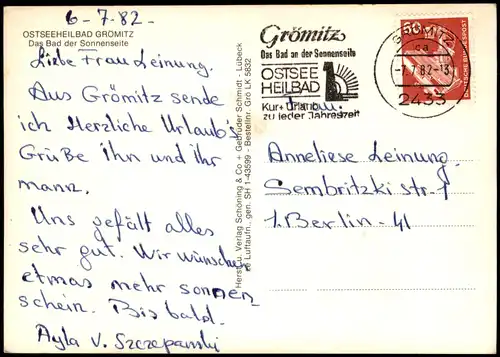 6-7.82-
OSTSEEHEILBAD GRÖMITZ
Das Bad der Sonnenseite
Liebe Frau Leinung.
Aus Grömitz sende
ich Herzliche Urlaub's
Grüße ihn und ihr
mann.
Uns gefält alles
sehr gut. Wir wünschen
etmas mehr sonnen-
schein. Bis bald.
Ayla v. Szczepanski
Herst. u. Verlag Schöning & Co + Gebrüder Schmidt - Lübeck
Luftaufn. gen. SH 1-43599 - Bestellnr. Grö LK 5832
Grömitz
Das Bad an der Sonnenseite
OSTSEE
HEILBAD
Kur + Urlaub
zu jeder Jahreszeit
GRÖMITZ
-7.7.82-13
2433
50
DEUTSCHE BUNDESPOST
Anneliese Leinung
Sembritzki str. 1
1. Berlin - 41